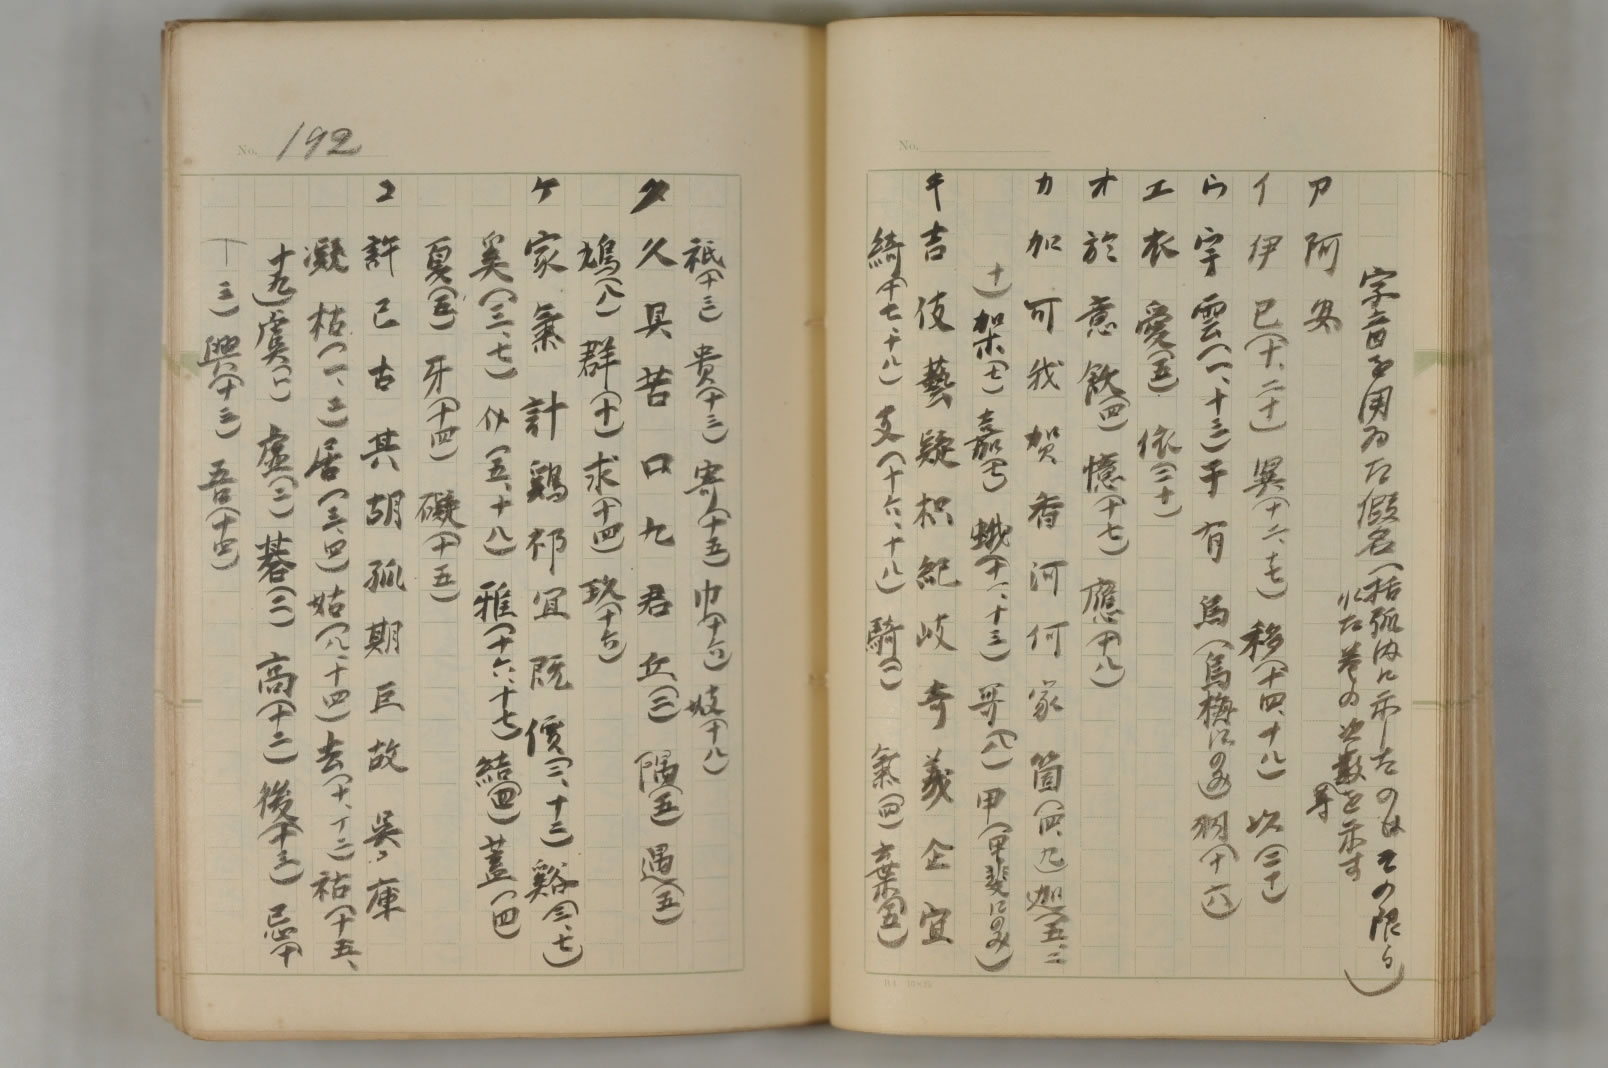 字音を用ゐた假名(括弧内に示したのはその限る)
した巻の次數を示す
ア 阿 安
イ 伊 已(十、二十) 異(十二、十七) 移(十四、十八) 以(二十)
ウ 宇 雲(一、十三) 于 有 烏(烏梅にのみ) 羽(十六)
エ 衣 愛(五) 依(二十)
オ 於 意 飲(四) 憶(十七) 應(十八)
カ 加 可 我 賀 香 河 何 家 箇(四、九) 迦(五、二
十) 架(七) 嘉(七) 蛾(十一、十三) 哥(八) 甲(甲斐にのみ)
キ 吉 伎 藝 疑 枳 紀 岐 奇 義 企 宜
綺(十七、十八) 支(十六、十八) 騎(一) 氣(四) 棄(五)
No. 192
祇(十三) 貴(十三) 寄(十五) 巾(十六) 妓(十八)
ク 久 具 苦 口 九 君 丘(三) 隅(五) 遇(五)
鳩(八) 群(十) 求(十四) 玖(十六)
ケ 家 氣 計 鷄 祁 宜 既 價(三、十二) 谿(三、七)
奚(三、七) (五、十八) 雅(十六、十七) 結(四) 蓋(四)
夏(五) 牙(十四) 礙(十五)
コ 許 己 古 其 胡 孤 期 巨 故 呉 庫
凝 枯(一、二) 居(三、四) 姑(八、十四) 去(十、十二) 祜(十五、
十九) 虞(一) 虛(二) 碁(二) 高(十二) 後(十三) 忌(十
三) 興(十三) 吾(十四)